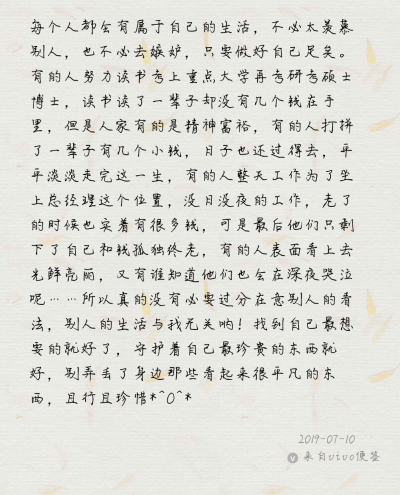 每个人都会有属于自己的生活，不必太羡慕
别人，也不必去嫉妒，只要做好自己足矣。
有的人努力读书考上重点大学再考研考硕士
博士，读书读了一辈子却没有几个钱在手
里，但是人家有的是精神富裕，有的人打拼
了一辈子有几个小钱，日子也还过得去，平
平淡淡走完这一生，有的人整天工作为了坐
上总经理这个位置，没日没夜的工作，老了
的时候也实着有很多钱，可是最后他们只剩
下了自己和钱孤独终老，有的人表面看上去
光鲜亮丽，又有谁知道他们也会在深夜哭泣
呢……所以真的没有必要过分在意别人的看
法，别人的生活与我无关呐！找到自己最想
要的就好了，守护着自己最珍贵的东西就
好，别弄丢了身边那些看起来很平凡的东
西，且行且珍惜*^O^*
2019-07-10
来自vivo便签